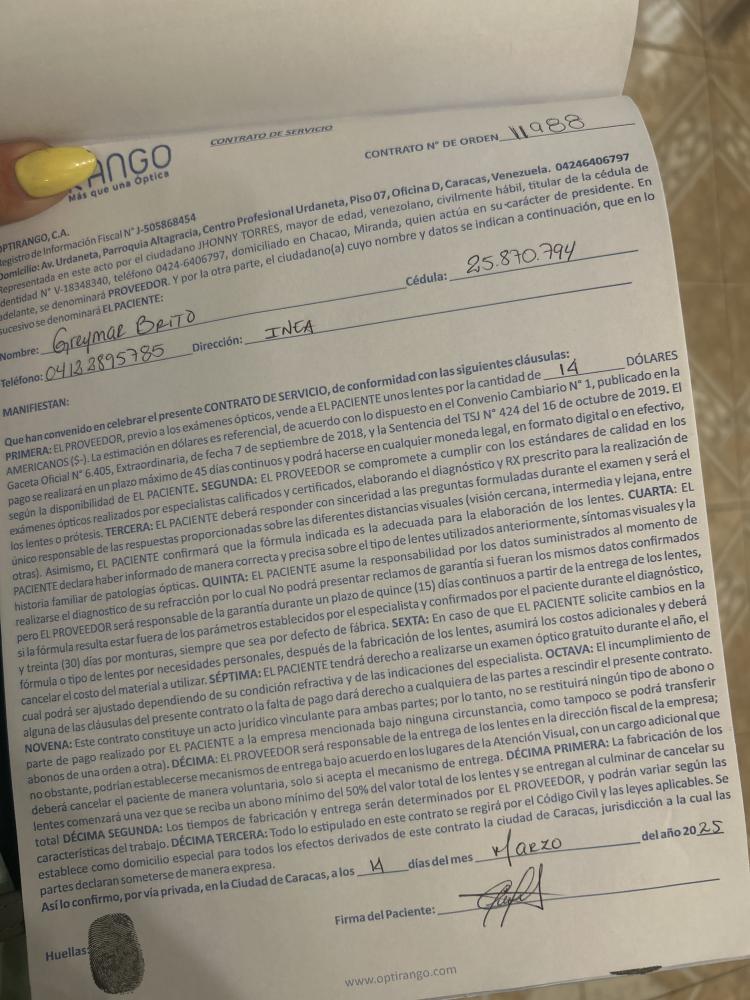 CONTRATO DE SERVICIO
CONTRATO N° DE ORDEN 11988
ANGO
Más que una Óptica
OPTIRANGO, C.A.
Registro de Información Fiscal N° J-505868454
Domicilio: Av. Urdaneta, Parroquia Altagracia, Centro Profesional Urdaneta, Piso 07, Oficina D, Caracas, Venezuela. 04246406797
Representada en este acto por el ciudadano JHONNY TORRES, mayor de edad, venezolano, civilmente hábil, titular de la cédula de
identidad N° V-18348340, teléfono 0424-6406797, domiciliado en Chacao, Miranda, quien actúa en su carácter de presidente. En
adelante, se denominará PROVEEDOR. Y por la otra parte, el ciudadano(a) cuyo nombre y datos se indican a continuación, que en lo
sucesivo se denominará EL PACIENTE:
Nombre: Greymar BRITO Cédula: 25.870.794
Teléfono: 04123895785 Dirección: INCA
MANIFIESTAN:
Que han convenido en celebrar el presente CONTRATO DE SERVICIO, de conformidad con las siguientes cláusulas:
PRIMERA: EL PROVEEDOR, previo a los exámenes ópticos, vende a EL PACIENTE unos lentes por la cantidad de 14 DÓLARES
AMERICANOS ($-). La estimación en dólares es referencial, de acuerdo con lo dispuesto en el Convenio Cambiario N° 1, publicado en la
Gaceta Oficial N° 6.405, Extraordinaria, de fecha 7 de septiembre de 2018, y la Sentencia del TSJ N° 424 del 16 de octubre de 2019. El
pago se realizará en un plazo máximo de 45 días continuos y podrá hacerse en cualquier moneda legal, en formato digital o en efectivo,
según la disponibilidad de EL PACIENTE. SEGUNDA: EL PROVEEDOR se compromete a cumplir con los estándares de calidad en los
exámenes ópticos realizados por especialistas calificados y certificados, elaborando el diagnóstico y RX prescrito para la realización de
los lentes o prótesis. TERCERA: EL PACIENTE deberá responder con sinceridad a las preguntas formuladas durante el examen y será el
único responsable de las respuestas proporcionadas sobre las diferentes distancias visuales (visión cercana, intermedia y lejana, entre
otras). Asimismo, EL PACIENTE confirmará que la fórmula indicada es la adecuada para la elaboración de los lentes. CUARTA: EL
PACIENTE declara haber informado de manera correcta y precisa sobre el tipo de lentes utilizados anteriormente, síntomas visuales y la
historia familiar de patologías ópticas. QUINTA: EL PACIENTE asume la responsabilidad por los datos suministrados al momento de
realizarse el diagnostico de su refracción por lo cual No podrá presentar reclamos de garantía si fueran los mismos datos confirmados
pero EL PROVEEDOR será responsable de la garantía durante un plazo de quince (15) días continuos a partir de la entrega de los lentes,
si la fórmula resulta estar fuera de los parámetros establecidos por el especialista y confirmados por el paciente durante el diagnóstico,
y treinta (30) días por monturas, siempre que sea por defecto de fábrica. SEXTA: En caso de que EL PACIENTE solicite cambios en la
fórmula o tipo de lentes por necesidades personales, después de la fabricación de los lentes, asumirá los costos adicionales y deberá
cancelar el costo del material a utilizar. SÉPTIMA: EL PACIENTE tendrá derecho a realizarse un examen óptico gratuito durante el año, el
cual podrá ser ajustado dependiendo de su condición refractiva y de las indicaciones del especialista. OCTAVA: El incumplimiento de
alguna de las cláusulas del presente contrato o la falta de pago dará derecho a cualquiera de las partes a rescindir el presente contrato.
NOVENA: Este contrato constituye un acto jurídico vinculante para ambas partes; por lo tanto, no se restituirá ningún tipo de abono o
parte de pago realizado por EL PACIENTE a la empresa mencionada bajo ninguna circunstancia, como tampoco se podrá transferir
abonos de una orden a otra). DÉCIMA: EL PROVEEDOR será responsable de la entrega de los lentes en la dirección fiscal de la empresa;
no obstante, podrían establecerse mecanismos de entrega bajo acuerdo en los lugares de la Atención Visual, con un cargo adicional que
deberá cancelar el paciente de manera voluntaria, solo si acepta el mecanismo de entrega. DÉCIMA PRIMERA: La fabricación de los
lentes comenzará una vez que se reciba un abono mínimo del 50% del valor total de los lentes y se entregan al culminar de cancelar su
total DÉCIMA SEGUNDA: Los tiempos de fabricación y entrega serán determinados por EL PROVEEDOR, y podrán variar según las
características del trabajo. DÉCIMA TERCERA: Todo lo estipulado en este contrato se regirá por el Código Civil y las leyes aplicables. Se
establece como domicilio especial para todos los efectos derivados de este contrato la ciudad de Caracas, jurisdicción a la cual las
partes declaran someterse de manera expresa.
Así lo confirmo, por vía privada, en la Ciudad de Caracas, a los 14 días del mes MARZO del año 2025
Firma del Paciente:
Huellas:
www.optirango.com